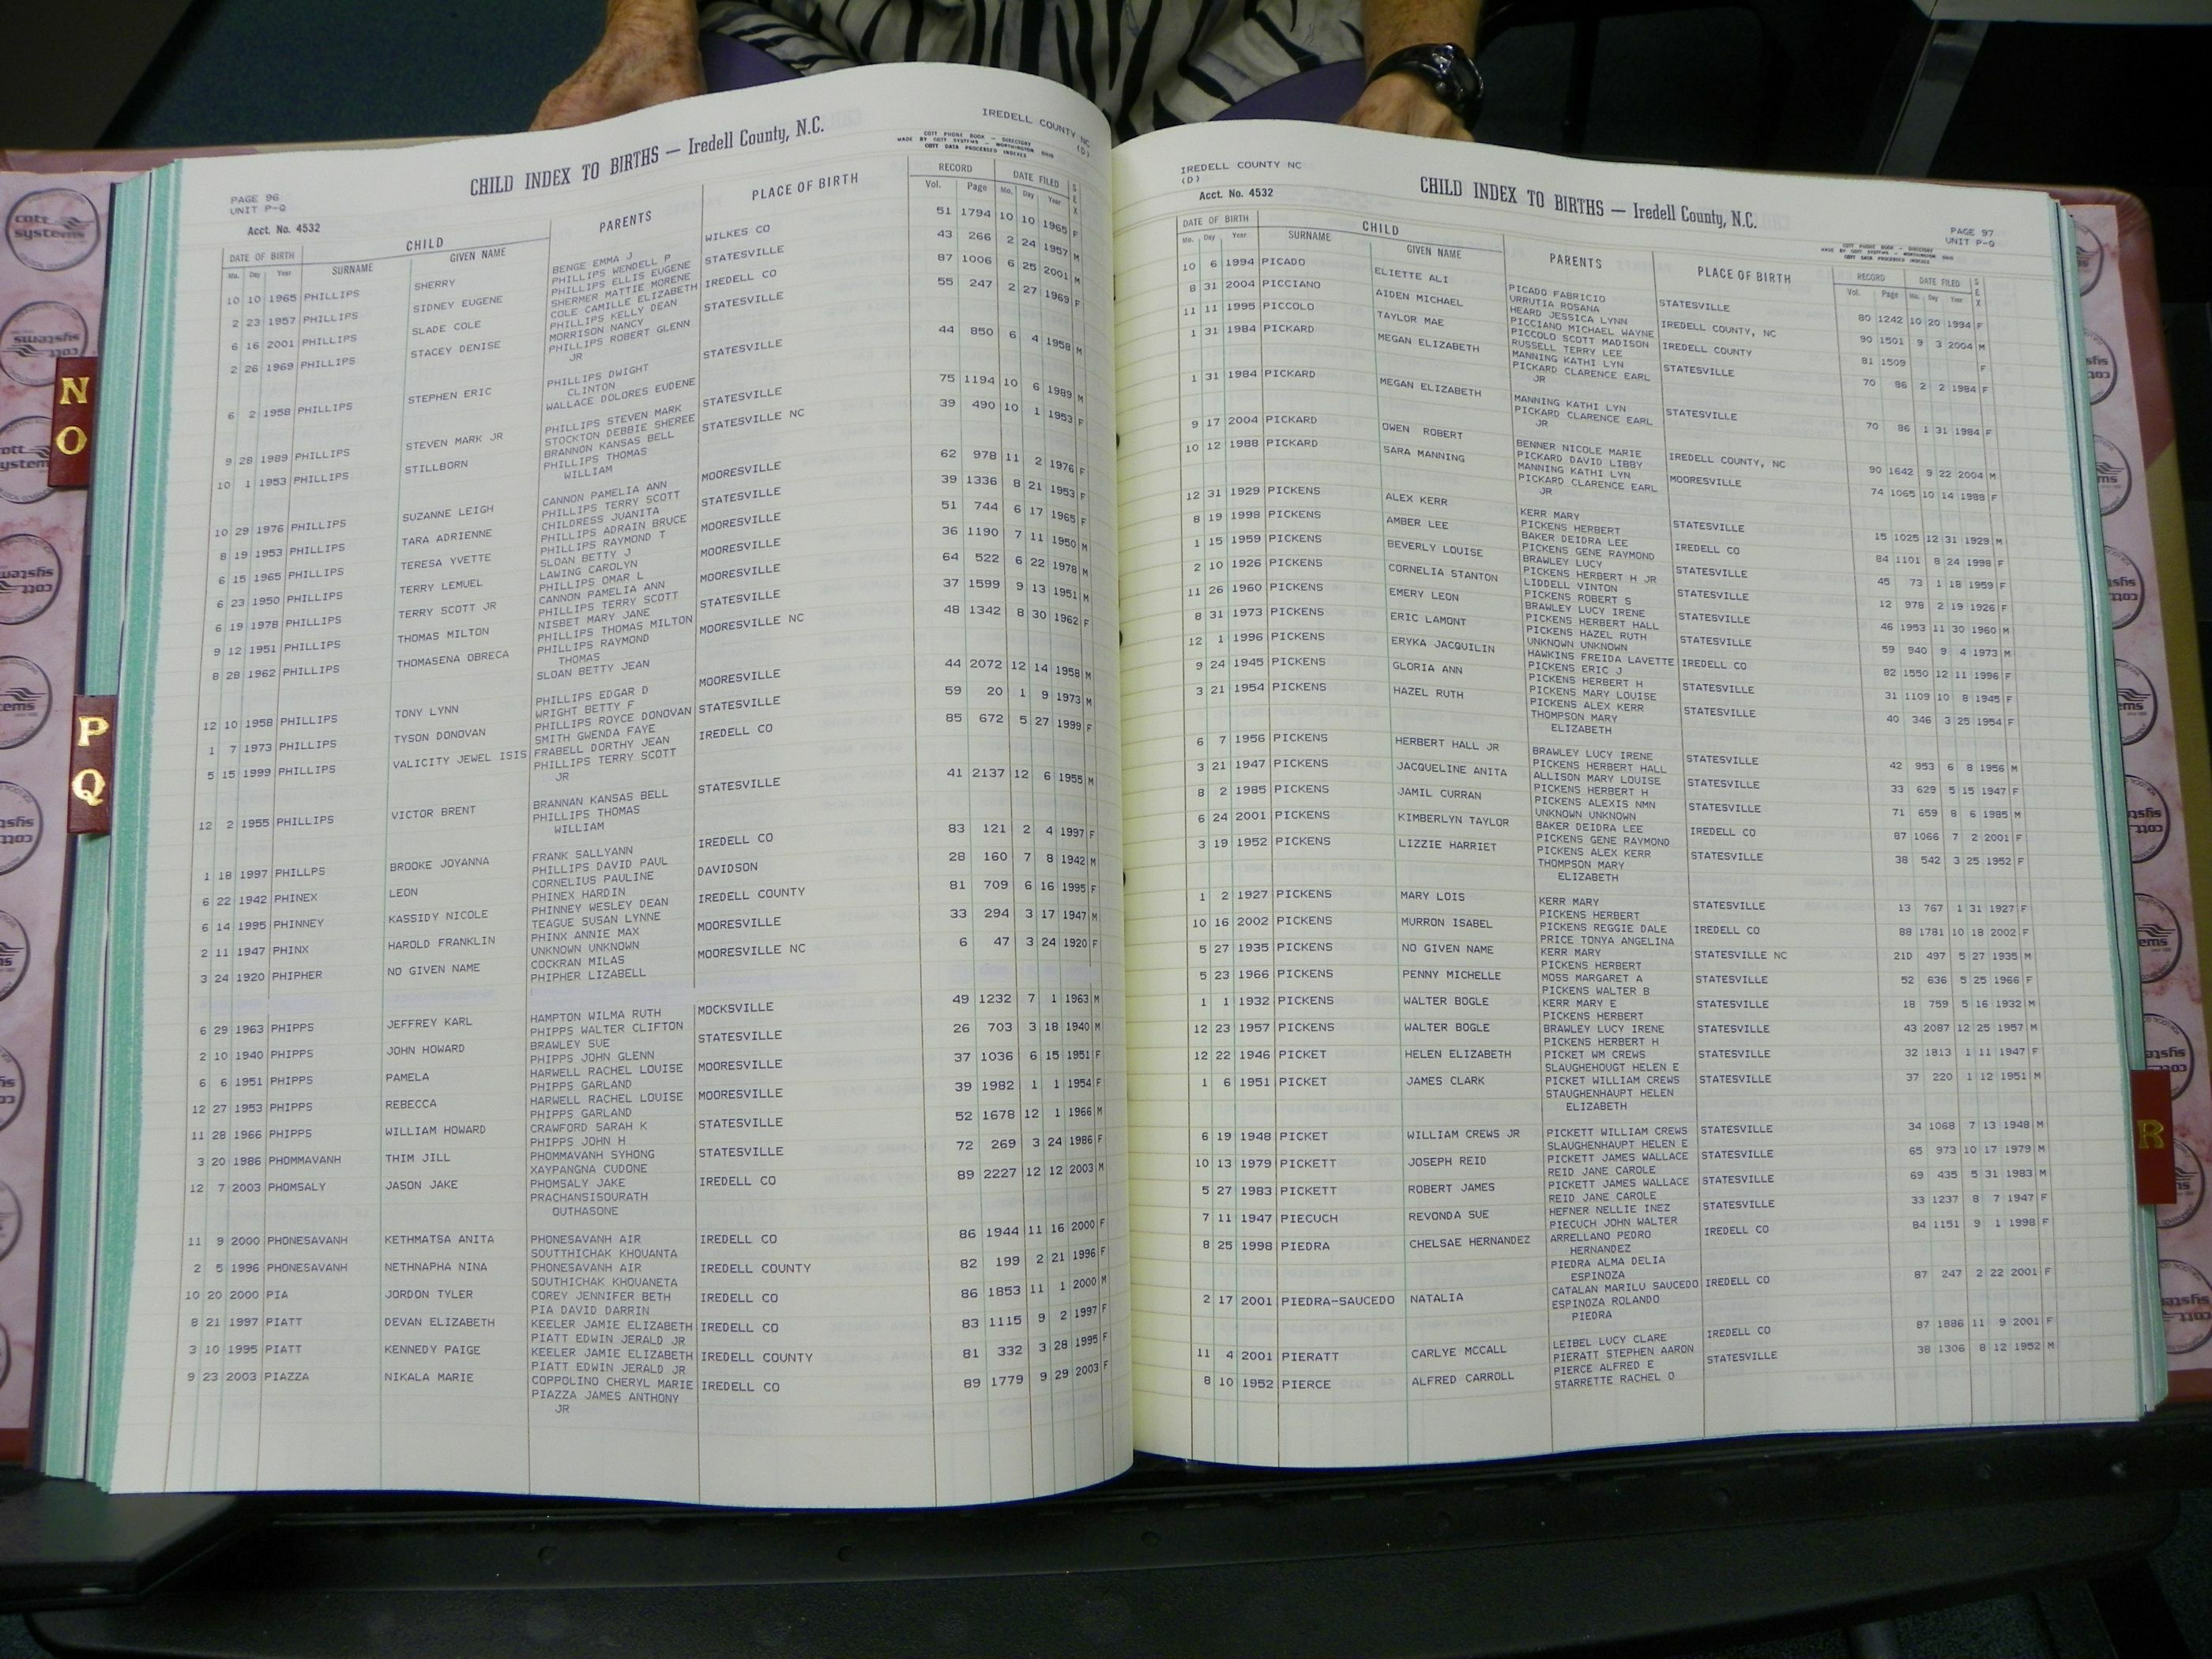 IREDELL COUNTY NC
(D)
CHILD INDEX TO BIRTHS — Iredell County, N.C.
COTT PHONE BOOK — DIRECTORY
MADE BY COTT SYSTEMS — WORTHINGTON OHIO
COTT DATA PROCESSED INDEXES
PAGE 96
UNIT P-Q
Acct. No. 4532
DATE OF BIRTH CHILD PARENTS PLACE OF BIRTH RECORD DATE FILED SEX
Mo. Day Year SURNAME GIVEN NAME Vol. Page Mo. Day Year
10 10 1965 PHILLIPS SHERRY BENGE EMMA J WILKES CO 51 1794 10 10 1965 F
PHILLIPS WENDELL P
2 23 1957 PHILLIPS SIDNEY EUGENE PHILLIPS ELLIS EUGENE STATESVILLE 43 266 2 24 1957 M
SHERMER MATTIE MORENE
6 16 2001 PHILLIPS SLADE COLE COLE CAMILLE ELIZABETH IREDELL CO 87 1006 6 25 2001 M
PHILLIPS KELLY DEAN
2 26 1969 PHILLIPS STACEY DENISE MORRISON NANCY STATESVILLE 55 247 2 27 1969 F
PHILLIPS ROBERT GLENN
JR
6 2 1958 PHILLIPS STEPHEN ERIC PHILLIPS DWIGHT STATESVILLE 44 850 6 4 1958 M
CLINTON
WALLACE DOLORES EUDENE
9 28 1989 PHILLIPS STEVEN MARK JR PHILLIPS STEVEN MARK STATESVILLE 75 1194 10 6 1989 M
STOCKTON DEBBIE SHEREE
10 1 1953 PHILLIPS STILLBORN BRANNON KANSAS BELL STATESVILLE NC 39 490 10 1 1953 F
PHILLIPS THOMAS
WILLIAM
10 29 1976 PHILLIPS SUZANNE LEIGH CANNON PAMELIA ANN MOORESVILLE 62 978 11 2 1976 F
PHILLIPS TERRY SCOTT
8 19 1953 PHILLIPS TARA ADRIENNE CHILDRESS JUANITA STATESVILLE 39 1336 8 21 1953 F
PHILLIPS ADRAIN BRUCE
6 15 1965 PHILLIPS TERESA YVETTE PHILLIPS RAYMOND T MOORESVILLE 51 744 6 17 1965 F
SLOAN BETTY J
6 23 1950 PHILLIPS TERRY LEMUEL LAWING CAROLYN MOORESVILLE 36 1190 7 11 1950 M
PHILLIPS OMAR L
6 19 1978 PHILLIPS TERRY SCOTT JR CANNON PAMELIA ANN MOORESVILLE 64 522 6 22 1978 M
PHILLIPS TERRY SCOTT
9 12 1951 PHILLIPS THOMAS MILTON NISBET MARY JANE STATESVILLE 37 1599 9 13 1951 M
PHILLIPS THOMAS MILTON
8 28 1962 PHILLIPS THOMASENA OBRECA PHILLIPS RAYMOND MOORESVILLE NC 48 1342 8 30 1962 F
THOMAS
SLOAN BETTY JEAN
12 10 1958 PHILLIPS TONY LYNN PHILLIPS EDGAR D MOORESVILLE 44 2072 12 14 1958 M
WRIGHT BETTY F
1 7 1973 PHILLIPS TYSON DONOVAN PHILLIPS ROYCE DONOVAN STATESVILLE 59 20 1 9 1973 M
SMITH GWENDA FAYE
5 15 1999 PHILLIPS VALICITY JEWEL ISIS FRABELL DORTHY JEAN IREDELL CO 85 672 5 27 1999 F
PHILLIPS TERRY SCOTT
JR
12 2 1955 PHILLIPS VICTOR BRENT BRANNAN KANSAS BELL STATESVILLE 41 2137 12 6 1955 M
PHILLIPS THOMAS
WILLIAM
1 18 1997 PHILLPS BROOKE JOYANNA FRANK SALLYANN IREDELL CO 83 121 2 4 1997 F
PHILLIPS DAVID PAUL
6 22 1942 PHINEX LEON CORNELIUS PAULINE DAVIDSON 28 160 7 8 1942 M
PHINEX HARDIN
6 14 1995 PHINNEY KASSIDY NICOLE PHINNEY WESLEY DEAN IREDELL COUNTY 81 709 6 16 1995 F
TEAGUE SUSAN LYNNE
2 11 1947 PHINX HAROLD FRANKLIN PHINX ANNIE MAX MOORESVILLE 33 294 3 17 1947 M
UNKNOWN UNKNOWN
3 24 1920 PHIPHER NO GIVEN NAME COCKRAN MILAS MOORESVILLE NC 6 47 3 24 1920 F
PHIPHER LIZABELL
6 29 1963 PHIPPS JEFFREY KARL HAMPTON WILMA RUTH MOCKSVILLE 49 1232 7 1 1963 M
PHIPPS WALTER CLIFTON
2 10 1940 PHIPPS JOHN HOWARD BRAWLEY SUE STATESVILLE 26 703 3 18 1940 M
PHIPPS JOHN GLENN
6 6 1951 PHIPPS PAMELA HARWELL RACHEL LOUISE MOORESVILLE 37 1036 6 15 1951 F
PHIPPS GARLAND
12 27 1953 PHIPPS REBECCA HARWELL RACHEL LOUISE MOORESVILLE 39 1982 1 1 1954 F
PHIPPS GARLAND
11 28 1966 PHIPPS WILLIAM HOWARD CRAWFORD SARAH K STATESVILLE 52 1678 12 1 1966 M
PHIPPS JOHN H
3 20 1986 PHOMMAVANH THIM JILL PHOMMAVANH SYHONG STATESVILLE 72 269 3 24 1986 F
XAYPANGNA CUDONE
12 7 2003 PHOMSALY JASON JAKE PHOMSALY JAKE IREDELL CO 89 2227 12 12 2003 M
PRACHANSISOURATH
OUTHASONE
11 9 2000 PHONESAVANH KETHMATSA ANITA PHONESAVANH AIR IREDELL CO 86 1944 11 16 2000 F
SOUTTHICHAK KHOUANTA
2 5 1996 PHONESAVANH NETHNAPHA NINA PHONESAVANH AIR IREDELL COUNTY 82 199 2 21 1996 F
SOUTHICHAK KHOUANETA
10 20 2000 PIA JORDON TYLER COREY JENNIFER BETH IREDELL CO 86 1853 11 1 2000 M
PIA DAVID DARRIN
8 21 1997 PIATT DEVAN ELIZABETH KEELER JAMIE ELIZABETH IREDELL CO 83 1115 9 2 1997 F
PIATT EDWIN JERALD JR
3 10 1995 PIATT KENNEDY PAIGE KEELER JAMIE ELIZABETH IREDELL COUNTY 81 332 3 28 1995 F
PIATT EDWIN JERALD JR
9 23 2003 PIAZZA NIKALA MARIE COPPOLINO CHERYL MARIE IREDELL CO 89 1779 9 29 2003 F
PIAZZA JAMES ANTHONY
JR
IREDELL COUNTY NC
(D)
Acct. No. 4532
CHILD INDEX TO BIRTHS — Iredell County, N.C.
PAGE 97
UNIT P-Q
COTT PHONE BOOK — DIRECTORY
MADE BY COTT SYSTEMS — WORTHINGTON OHIO
COTT DATA PROCESSED INDEXES
DATE OF BIRTH CHILD PARENTS PLACE OF BIRTH RECORD DATE FILED SEX
Mo. Day Year SURNAME GIVEN NAME Vol. Page Mo. Day Year
10 6 1994 PICADO ELIETTE ALI PICADO FABRICIO STATESVILLE 80 1242 10 20 1994 F
URRUTIA ROSANA
8 31 2004 PICCIANO AIDEN MICHAEL HEARD JESSICA LYNN IREDELL COUNTY, NC 90 1501 9 3 2004 M
PICCIANO MICHAEL WAYNE
11 11 1995 PICCOLO TAYLOR MAE PICCOLO SCOTT MADISON IREDELL COUNTY 81 1509 F
RUSSELL TERRY LEE
1 31 1984 PICKARD MEGAN ELIZABETH MANNING KATHI LYN STATESVILLE 70 86 2 2 1984 F
PICKARD CLARENCE EARL
JR
1 31 1984 PICKARD MEGAN ELIZABETH MANNING KATHI LYN STATESVILLE 70 86 1 31 1984 F
PICKARD CLARENCE EARL
JR
9 17 2004 PICKARD OWEN ROBERT BENNER NICOLE MARIE IREDELL COUNTY, NC 90 1642 9 22 2004 M
PICKARD DAVID LIBBY
10 12 1988 PICKARD SARA MANNING MANNING KATHI LYN MOORESVILLE 74 1065 10 14 1988 F
PICKARD CLARENCE EARL
JR
12 31 1929 PICKENS ALEX KERR KERR MARY STATESVILLE 15 1025 12 31 1929 M
PICKENS HERBERT
8 19 1998 PICKENS AMBER LEE BAKER DEIDRA LEE IREDELL CO 84 1101 8 24 1998 F
PICKENS GENE RAYMOND
1 15 1959 PICKENS BEVERLY LOUISE BRAWLEY LUCY STATESVILLE 45 73 1 18 1959 F
PICKENS HERBERT H JR
2 10 1926 PICKENS CORNELIA STANTON LIDDELL VINTON STATESVILLE 12 978 2 19 1926 F
PICKENS ROBERT S
11 26 1960 PICKENS EMERY LEON BRAWLEY LUCY IRENE STATESVILLE 46 1953 11 30 1960 M
PICKENS HERBERT HALL
8 31 1973 PICKENS ERIC LAMONT PICKENS HAZEL RUTH STATESVILLE 59 940 9 4 1973 M
UNKNOWN UNKNOWN
12 1 1996 PICKENS ERYKA JACQUILIN HAWKINS FREIDA LAVETTE IREDELL CO 82 1550 12 11 1996 F
PICKENS ERIC J
9 24 1945 PICKENS GLORIA ANN PICKENS HERBERT H STATESVILLE 31 1109 10 8 1945 F
PICKENS MARY LOUISE
3 21 1954 PICKENS HAZEL RUTH PICKENS ALEX KERR STATESVILLE 40 346 3 25 1954 F
THOMPSON MARY
ELIZABETH
6 7 1956 PICKENS HERBERT HALL JR BRAWLEY LUCY IRENE STATESVILLE 42 953 6 8 1956 M
PICKENS HERBERT HALL
3 21 1947 PICKENS JACQUELINE ANITA ALLISON MARY LOUISE STATESVILLE 33 629 5 15 1947 F
PICKENS HERBERT H
8 2 1985 PICKENS JAMIL CURRAN PICKENS ALEXIS NMN STATESVILLE 71 659 8 6 1985 M
UNKNOWN UNKNOWN
6 24 2001 PICKENS KIMBERLYN TAYLOR BAKER DEIDRA LEE IREDELL CO 87 1066 7 2 2001 F
PICKENS GENE RAYMOND
3 19 1952 PICKENS LIZZIE HARRIET PICKENS ALEX KERR STATESVILLE 38 542 3 25 1952 F
THOMPSON MARY
ELIZABETH
1 2 1927 PICKENS MARY LOIS KERR MARY STATESVILLE 13 767 1 31 1927 F
PICKENS HERBERT
10 16 2002 PICKENS MURRON ISABEL PICKENS REGGIE DALE IREDELL CO 88 1781 10 18 2002 F
PRICE TONYA ANGELINA
5 27 1935 PICKENS NO GIVEN NAME KERR MARY STATESVILLE NC 21D 497 5 27 1935 M
PICKENS HERBERT
5 23 1966 PICKENS PENNY MICHELLE MOSS MARGARET A STATESVILLE 52 636 5 25 1966 F
PICKENS WALTER B
1 1 1932 PICKENS WALTER BOGLE KERR MARY E STATESVILLE 18 759 5 16 1932 M
PICKENS HERBERT
12 23 1957 PICKENS WALTER BOGLE BRAWLEY LUCY IRENE STATESVILLE 43 2087 12 25 1957 M
PICKENS HERBERT H
12 22 1946 PICKET HELEN ELIZABETH PICKET WM CREWS STATESVILLE 32 1813 1 11 1947 F
SLAUGHEHOUGT HELEN E
1 6 1951 PICKET JAMES CLARK PICKET WILLIAM CREWS STATESVILLE 37 220 1 12 1951 M
STAUGHENHAUPT HELEN
ELIZABETH
6 19 1948 PICKET WILLIAM CREWS JR PICKETT WILLIAM CREWS STATESVILLE 34 1068 7 13 1948 M
SLAUGHENHAUPT HELEN E
10 13 1979 PICKETT JOSEPH REID PICKETT JAMES WALLACE STATESVILLE 65 973 10 17 1979 M
REID JANE CAROLE
5 27 1983 PICKETT ROBERT JAMES PICKETT JAMES WALLACE STATESVILLE 69 435 5 31 1983 M
REID JANE CAROLE
7 11 1947 PIECUCH REVONDA SUE HEFNER NELLIE INEZ STATESVILLE 33 1237 8 7 1947 F
PIECUCH JOHN WALTER
8 25 1998 PIEDRA CHELSAE HERNANDEZ ARRELLANO PEDRO IREDELL CO 84 1151 9 1 1998 F
HERNANDEZ
PIEDRA ALMA DELIA
ESPINOZA
2 17 2001 PIEDRA-SAUCEDO NATALIA CATALAN MARILU SAUCEDO IREDELL CO 87 247 2 22 2001 F
ESPINOZA ROLANDO
PIEDRA
11 4 2001 PIERATT CARLYE MCCALL LEIBEL LUCY CLARE IREDELL CO 87 1886 11 9 2001 F
PIERATT STEPHEN AARON
8 10 1952 PIERCE ALFRED CARROLL PIERCE ALFRED E STATESVILLE 38 1306 8 12 1952 M
STARRETTE RACHEL O
N
O
P
Q
R
cott
systems